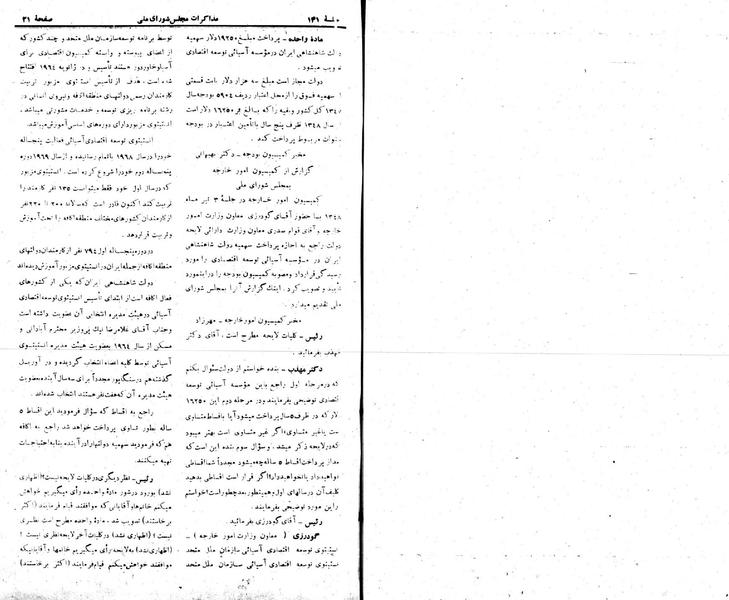 جلسهٔ ۱۴۱
مذاکرات مجلس شورای ملی
صفحهٔ ۳۱
مادهٔ واحده - پرداخت مبلغ ۱۹۲۵۰ دلار سهمیه
دولت شاهنشاهی ایران در مؤسسه آسیائی توسعه اقتصادی
تصویب میشود.
دولت مجاز است مبلغ سه هزار دلار بابت قسمتی
از سهمیه فوق را از محل اعتبار ردیف ۵۹۰۴ بودجه سال
۱۳۴۷ کل کشور و بقیه را که بالغ بر ۱۶۲۵۰ دلار است
از سال ۱۳۴۸ ظرف پنج سال با تأمین اعتبار در بودجه
سنوات مربوط پرداخت کند.
مخبر کمیسیون بودجه - دکتر بهبهانی
گزارش از کمیسیون امور خارجه
بمجلس شورای ملی
کمیسیون امور خارجه در جلسهٔ ۳ تیر ماه
۱۳۴۸ با حضور آقای گودرزی معاون وزارت امور
خارجه و آقای قوام صدری معاون وزارت دارائی لایحه
دولت راجع به اجازه پرداخت سهمیه دولت شاهنشاهی
ایران در مؤسسه آسیائی توسعه اقتصادی را مورد
رسیدگی قرارداد و مصوبه کمیسیون بودجه را در این مورد
تأیید و تصویب کرد. اینک گزارش آنرا بمجلس شورای
ملی تقدیم میدارد.
مخبر کمیسیون امور خارجه - مهرزاد
رئیس - کلیات لایحه مطرح است. آقای دکتر
مهذب بفرمائید.
دکتر مهذب - بنده خواستم از دولت سؤال بکنم
که در مرحله اول راجع باین مؤسسه آسیائی توسعه
اقتصادی توضیحی بفرمایند و در مرحله دوم این ۱۶۲۵۰
دلار که در ظرف ۵ سال پرداخت میشود آیا باقساط متساوی
است یا غیر متساوی؟ اگر غیر متساوی است بهتر میبود
که در لایحه ذکر میشد. و سؤال سوم بنده این است که
بعد از پرداخت اقساط ۵ ساله چه میشود مجدداً شما اقساطی
خواهید داد یا نخواهید داد؟ اگر قرار است اقساطی بدهید
تکلیف آن در سالهای اول و همینطور بعد چطور است خواستم
در این مورد توضیحی بفرمایند.
رئیس - آقای گودرزی بفرمائید.
گودرزی (معاون وزارت امور خارجه) -
انستیتوی توسعه اقتصادی آسیائی سازمان ملل متحد
انستیتوی توسعه اقتصادی آسیائی سازمان ملل متحد
توسط برنامه توسعه سازمان ملل متحد و چند کشور که
از اعضای پیوسته و وابسته کمیسیون اقتصادی برای
آسیا و خاور دور هستند تأسیس و در ژانویه ۱۹۶۴ افتتاح
شده است. هدف از تأسیس انستیتوی مزبور تربیت
کارمندان رسمی دولتهای منطقه اکافه و نیروی انسانی در
رشته برنامه ریزی توسعه و خدمات مشورتی میباشد.
انستیتوی مزبور دارای دوره‌های اساسی آموزش میباشد.
انستیتوی توسعه اقتصادی آسیائی فعالیت پنجساله
خود را در سال ۱۹۶۸ باتمام رسانیده و از سال ۱۹۶۹ دوره
پنجساله دوم خود را شروع کرده است. انستیتوی مزبور
که در سال اول خود فقط میتوانست ۱۳۵ نفر کارمند را
تربیت کند اکنون قادر است که سالانه ۲۰۰ تا ۲۲۰ نفر
از کارمندان کشورهای مختلف منطقه اکافه را تحت آموزش
و تربیت قراردهد.
در دوره پنجساله اول ۷۹۴ نفر از کارمندان دولتهای
منطقه اکافه از جمله ایران در انستیتوی مزبور آموزش دیده‌اند
دولت شاهنشاهی ایران که یکی از کشورهای
فعال اکافه است از ابتدای تأسیس انستیتوی توسعه اقتصادی
آسیائی در هیئت مدیره انتخابی آن عضویت داشته است
و جناب آقای غلامرضا نیک پی وزیر محترم آبادانی و
مسکن از سال ۱۹۶۴ بعضویت هیئت مدیره انستیتوی
آسیائی توسط کلیه اعضاء انتخاب گردیده و در آوریل
گذشته هم در سنگاپور مجدداً برای سه سال آینده بعضویت
هیئت مدیره آن که هفت نفر هستند انتخاب شده‌اند.
راجع به اقساط که سؤال فرمودید این اقساط ۵
ساله بطور تساوی پرداخت خواهد شد راجع به اکافه
هم که فرمودید سهمیه دولتها را در آینده بنابه احتیاجات
تهیه میکنند.
رئیس - نظر دیگری در کلیات لایحه نیست؟ (اظهاری
نشد) بورود در شور مادهٔ واحده رأی میگیریم خواهش
میکنم خانمها و آقایانی که موافقند قیام فرمایند (اکثر
برخاستند) تصویب شد. مادهٔ واحده مطرح است نظری
نیست؟ (اظهاری نشد) در کلیات آخر لایحه نظری نیست؟
(اظهاری نشد) به لایحه رأی میگیریم خانمها و آقایانیکه
موافقند خواهش میکنم قیام فرمایند (اکثر برخاستند)